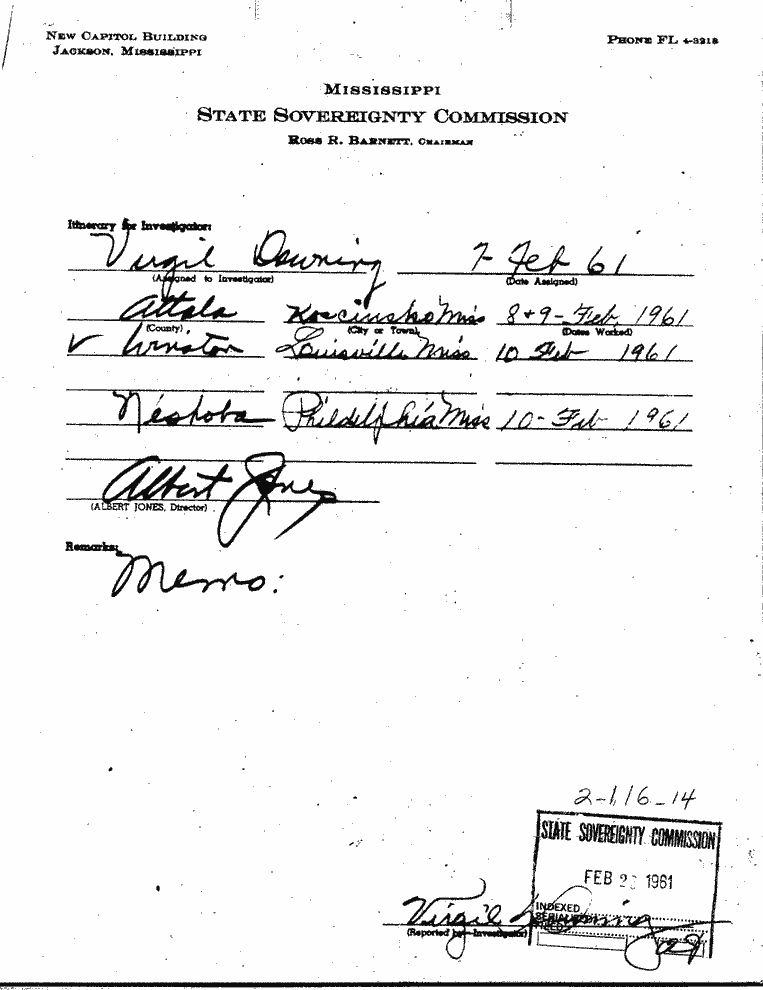 NEW CAPITOL BUILDING
JACKSON, MISSISSIPPI
PHONE FL 4-3218
MISSISSIPPI
STATE SOVEREIGNTY COMMISSION
ROSS R. BARNETT, CHAIRMAN
Itinerary for Investigator:
Virgil Downing 7 Feb 61
(Assigned to Investigator) (Date Assigned)
Attala Kosciusko Miss 8+9-Feb. 1961
(County) (City or Town) (Dates Worked)
✓ Winston Louisville Miss 10 Feb 1961
Neshoba Phildelphia Miss 10-Feb 1961
Albert Jones
(ALBERT JONES, Director)
Remarks:
Memo:
2-116-14
STATE SOVEREIGNTY COMMISSION
FEB 1961
INDEXED
Virgil Downing
SERIALIZED
FILED
(Reported by—Investigator)